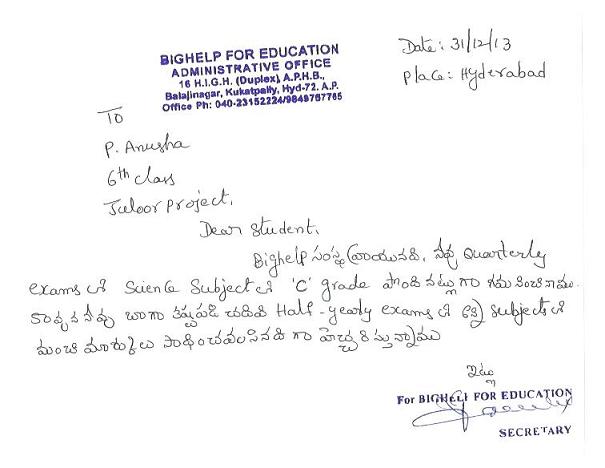 BIGHELP FOR EDUCATION
ADMINISTRATIVE OFFICE
16 H.I.G.H. (Duplex), A.P.H.B.,
Balajinagar, Kukatpally, Hyd-72. A.P.
Office Ph: 040-23152224/9849767765
Date: 31/12/13
Place: Hyderabad
To
P. Anusha
6th class
Juloor project.
Dear Student,
Bighelp సంస్థ వ్రాయునది. నీవు Quarterly
exams లో Science Subject లో 'C' grade పొందినట్లుగా గమనించినాము.
కావున నీవు బాగా కష్టపడి చదివి Half-yearly exams లో అన్ని Subjects లో
మంచి మార్కులు సాధించవలసినది గా హెచ్చరిస్తున్నాము
ఇట్లు
For BIGHELP FOR EDUCATION
SECRETARY